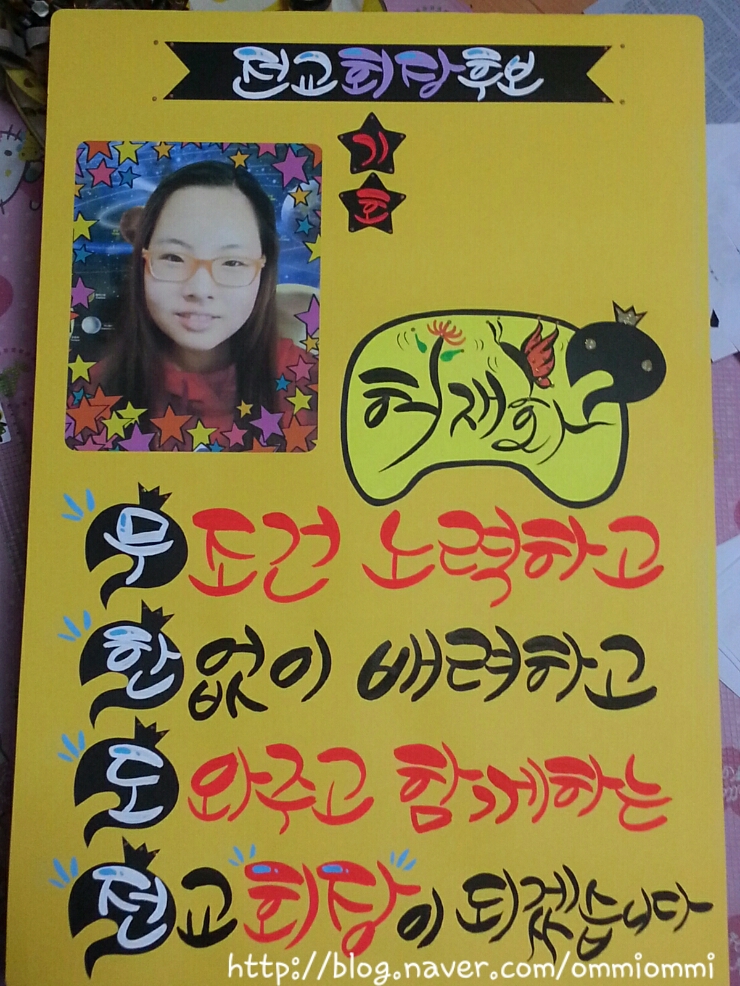 전교회장후보
기
호
허재화
무조건 노력하고
한없이 배려하고
도와주고 함께하는
전교회장이 되겠습니다
http://blog.naver.com/ommiommi